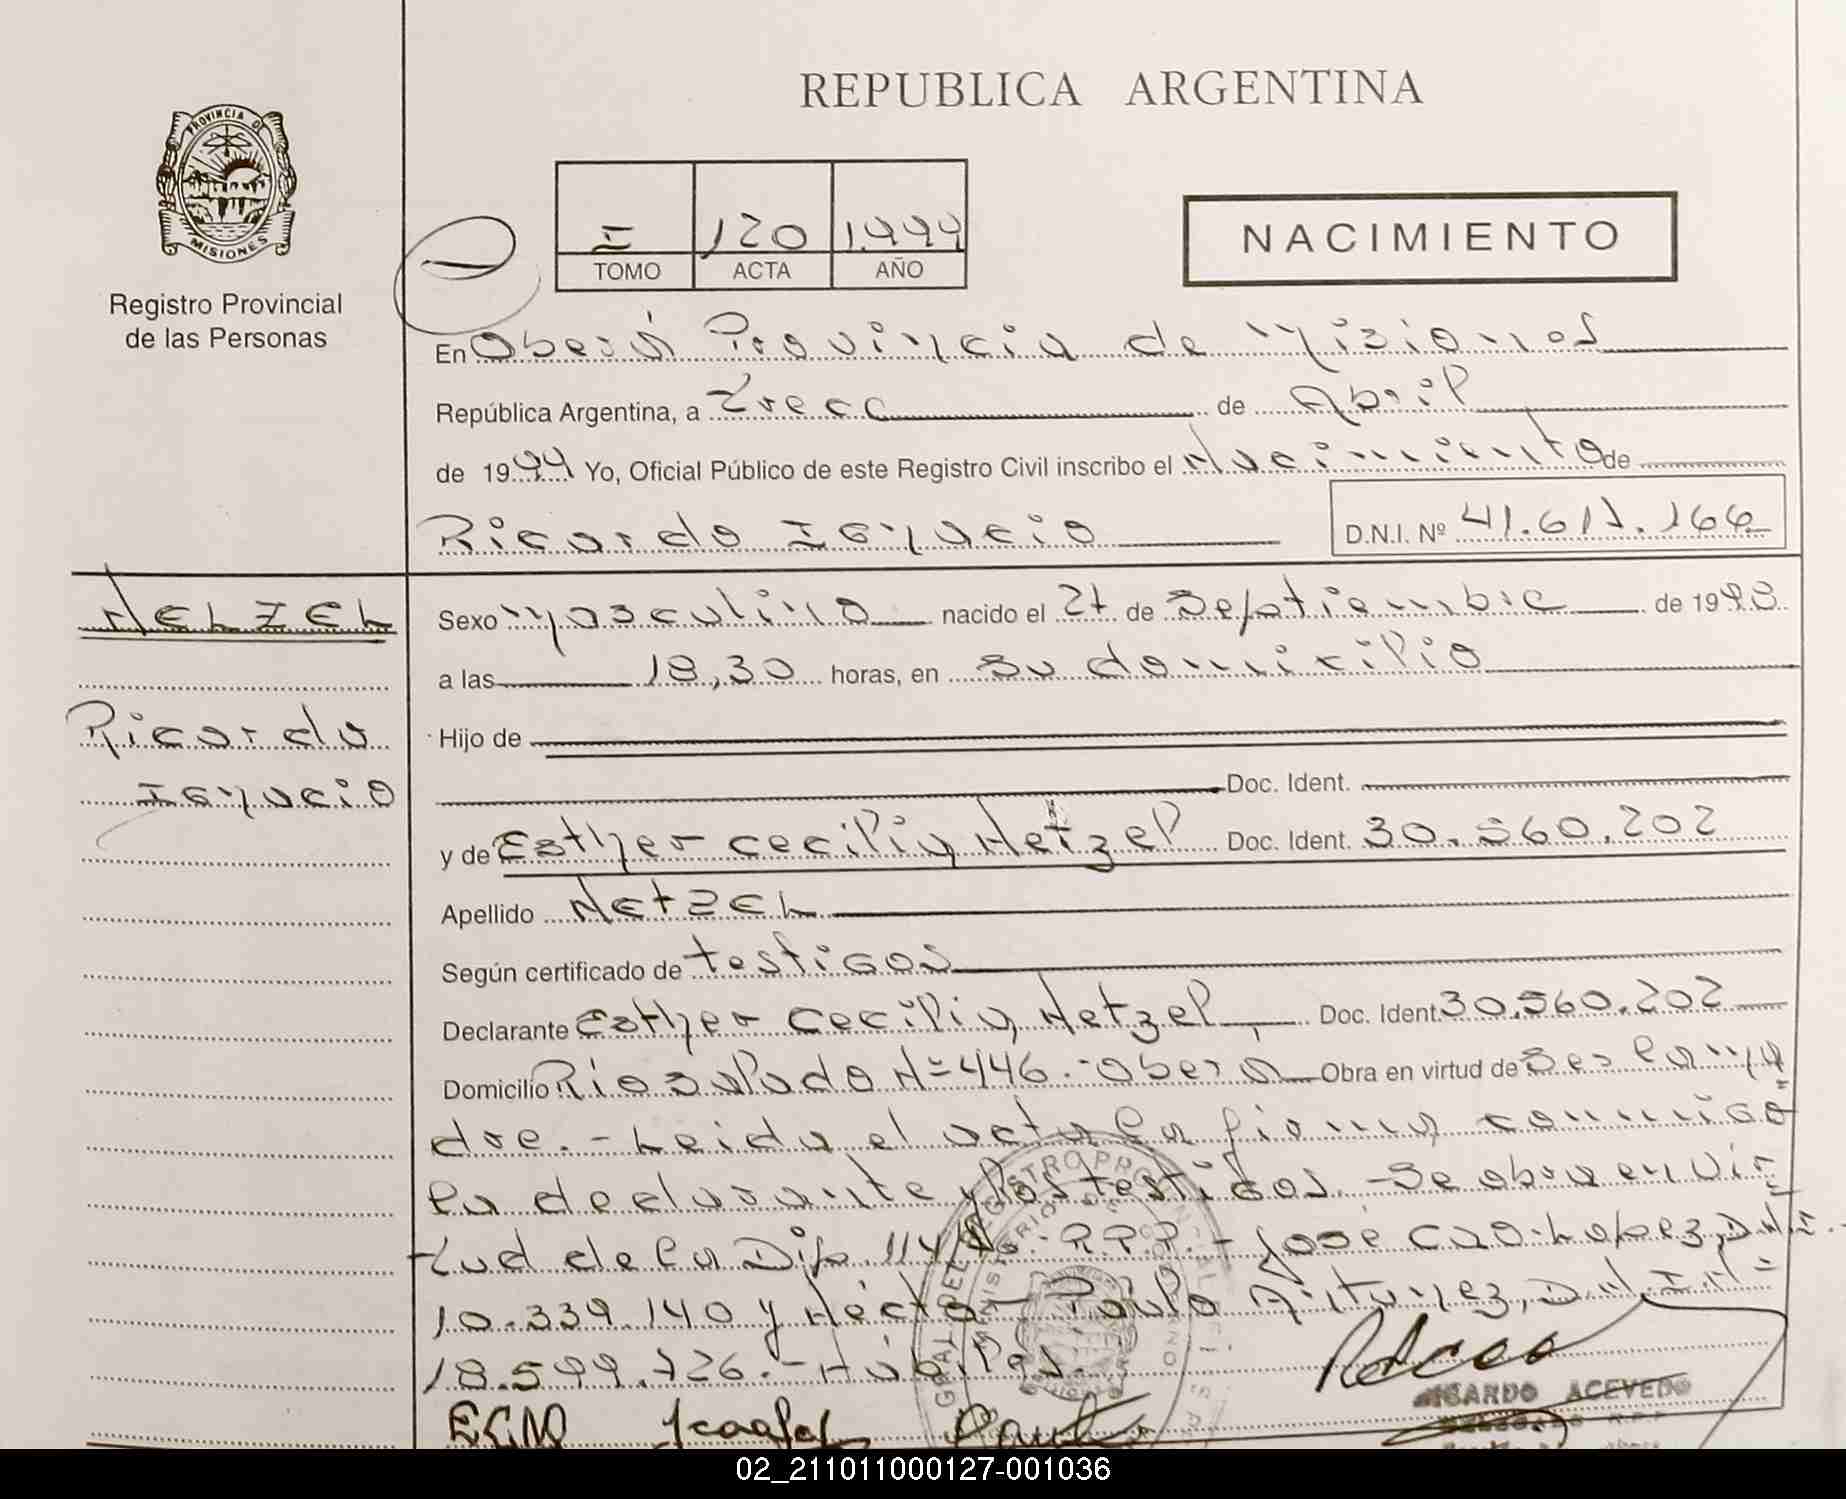 REPUBLICA ARGENTINA
PROVINCIA DE
MISIONES
Registro Provincial
de las Personas
I 120 1.999
TOMO ACTA AÑO
NACIMIENTO
En Oberá Provincia de Misiones
República Argentina, a trece de Abril
de 1999 Yo, Oficial Público de este Registro Civil inscribo el Nacimiento de
Ricardo Ignacio D.N.I. Nº
Sexo Masculino nacido el 27 de Septiembre de 1998
a las 18,30 horas, en su domicilio
Ricardo
Ignacio
Hijo de
Doc. Ident.
y de Esther cecilia Netzel Doc. Ident. 30.560.202
Apellido Netzel
Según certificado de testigos
Declarante Esther cecilia Netzel Doc. Ident. 30.560.202
Domicilio Rio Salado Nº 446.- Oberá Obra en virtud de Ser la ma
dre.- Leida el acta la firma conmigo
la declarante y los testigos.- Se obra en vir
tud de la Disp. 114/86.- R.P.P.- José Lopez, D.N.I.
10.339.140 y Héctor Paulo Antunez, D.N.I. Nº
18.599.726.- Hábiles.
RICARDO ACEVEDO
02_211011000127-001036